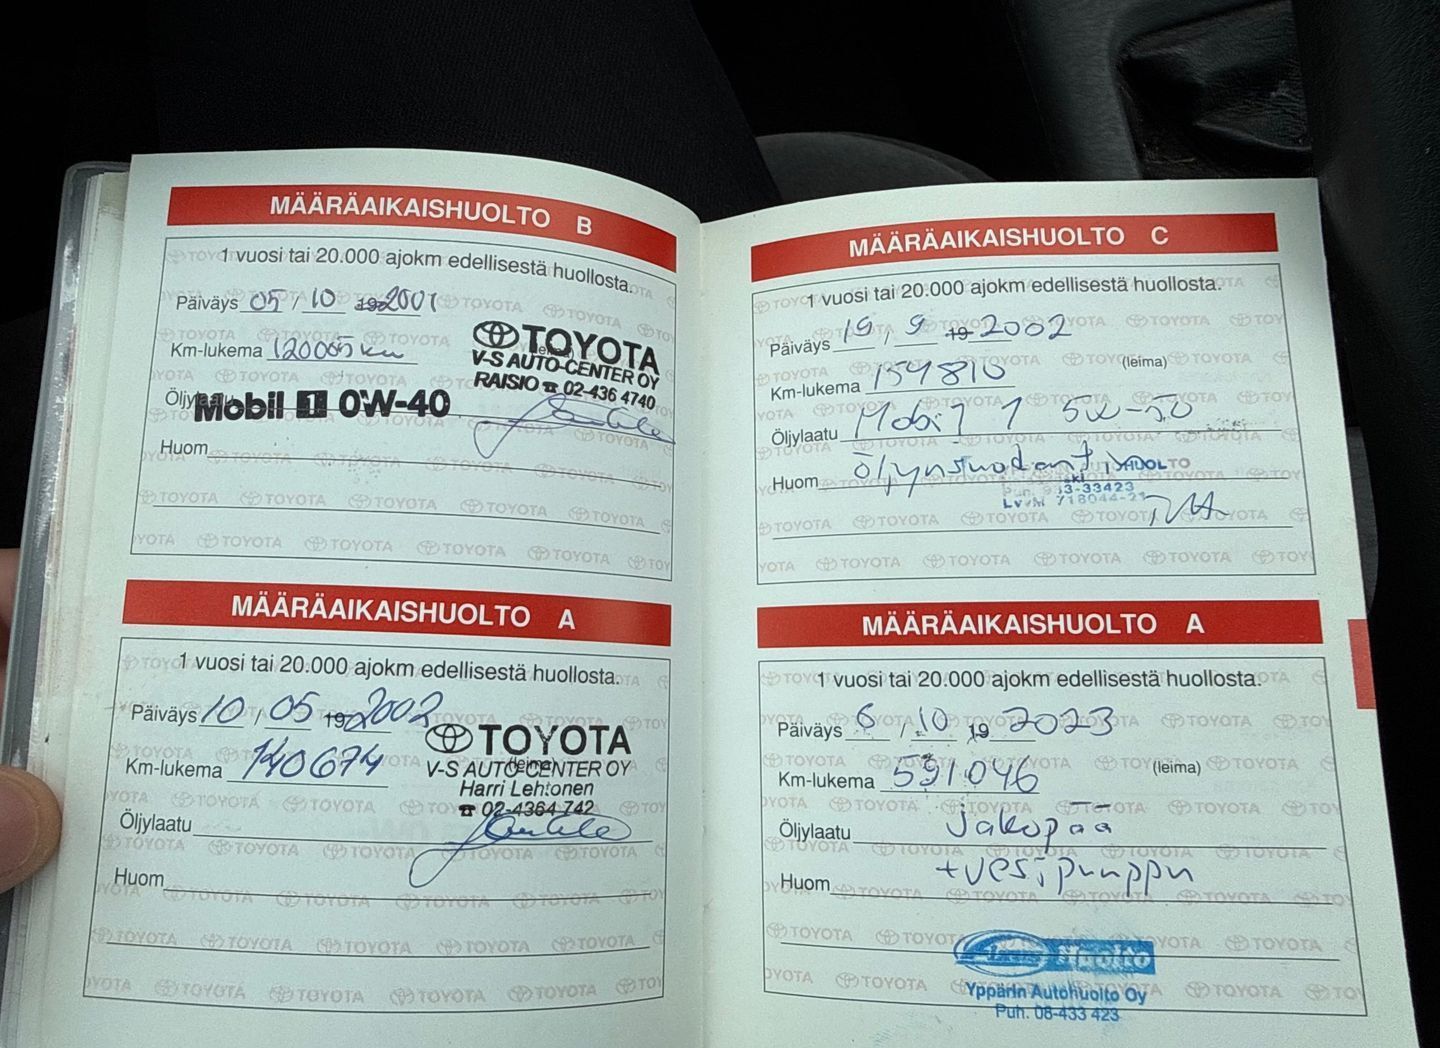 MÄÄRÄAIKAISHUOLTO B
1 vuosi tai 20.000 ajokm edellisestä huollosta.
Päiväys 05 / 10 192001
Km-lukema 120005 km
TOYOTA
(leima)
V-S AUTO-CENTER OY
RAISIO ☎ 02-436 4740
Öljylaatu Mobil 1 0W-40
Huom
MÄÄRÄAIKAISHUOLTO A
1 vuosi tai 20.000 ajokm edellisestä huollosta.
Päiväys 10 / 05 192002
Km-lukema 140674
TOYOTA
(leima)
V-S AUTO-CENTER OY
Harri Lehtonen
☎ 02-4364 742
Öljylaatu
Huom
MÄÄRÄAIKAISHUOLTO C
1 vuosi tai 20.000 ajokm edellisestä huollosta.
Päiväys 19 / 9 19 2002
(leima)
Km-lukema 159810
Öljylaatu Mobil 1 5W-50
Huom öljynsuodantin
HUOLTO
33-33423
LVVM 718044-21
MÄÄRÄAIKAISHUOLTO A
1 vuosi tai 20.000 ajokm edellisestä huollosta.
Päiväys 6 / 10 19 2023
Km-lukema 591046 (leima)
Öljylaatu jakopää
Huom +vesipumppu
Huolto
Yppärin Autohuolto Oy
Puh. 08-433 423